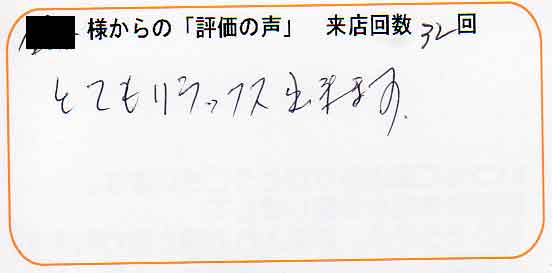 様からの「評価の声」 来店回数 32回
とてもリラックス出来ます.